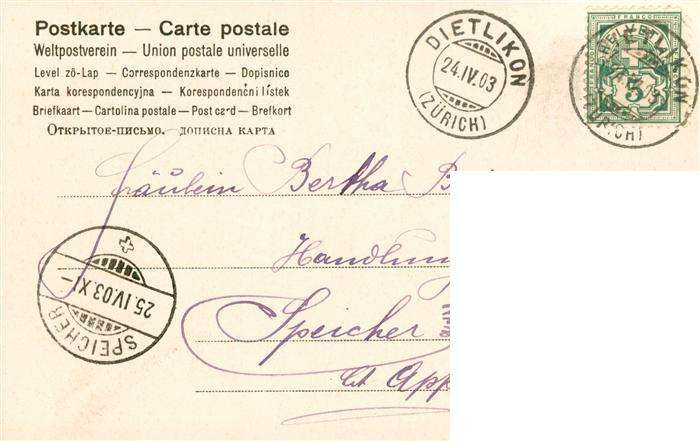 Postkarte — Carte postale
Weltpostverein — Union postale universelle
Level zö-Lap — Correspondenzkarte — Dopisnice
Karta korespondencyjna — Korespondenční lístek
Briefkaart — Cartolina postale — Post card — Brefkort
Открытое-письмо. дописна карта
DIETLIKON
24.IV.03
(ZÜRICH)
FRANCO
5
Fräulein Bertha B
Handlung
Speicher
Ct. App
25.IV.03.XI–
SPEICHER